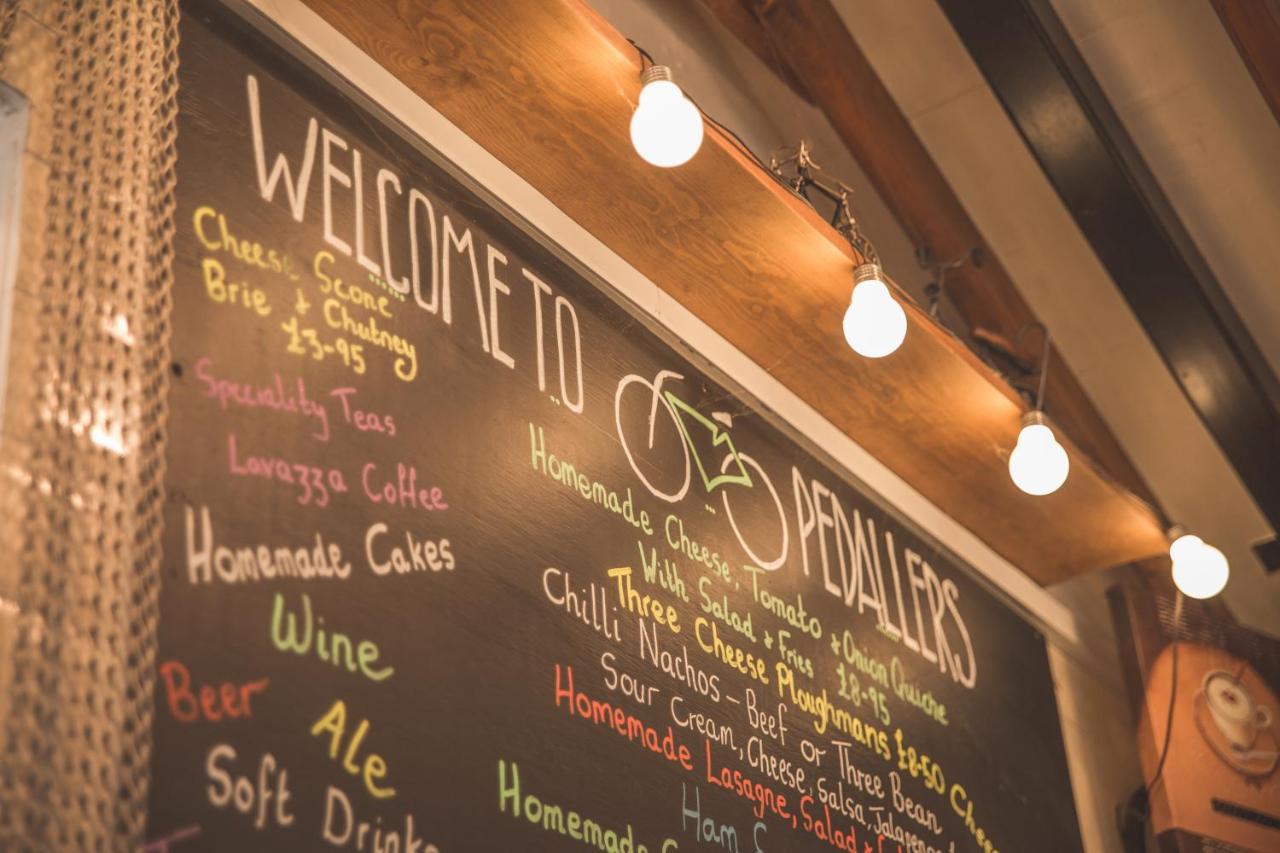 WELCOME TO PEDALLERS
Cheese Scone
Brie & Chutney
£3-95
Speciality Teas
Lavazza Coffee
Homemade Cakes
Wine
Beer
Ale
Soft Drinks
Homemade Cheese, Tomato & Onion Quiche
With Salad & Fries £8-95
Three Cheese Ploughmans £8-50
Chilli Nachos - Beef or Three Bean
Sour Cream, Cheese, Salsa, Jalapenos
Homemade Lasagne, Salad &
Homemade
Ham